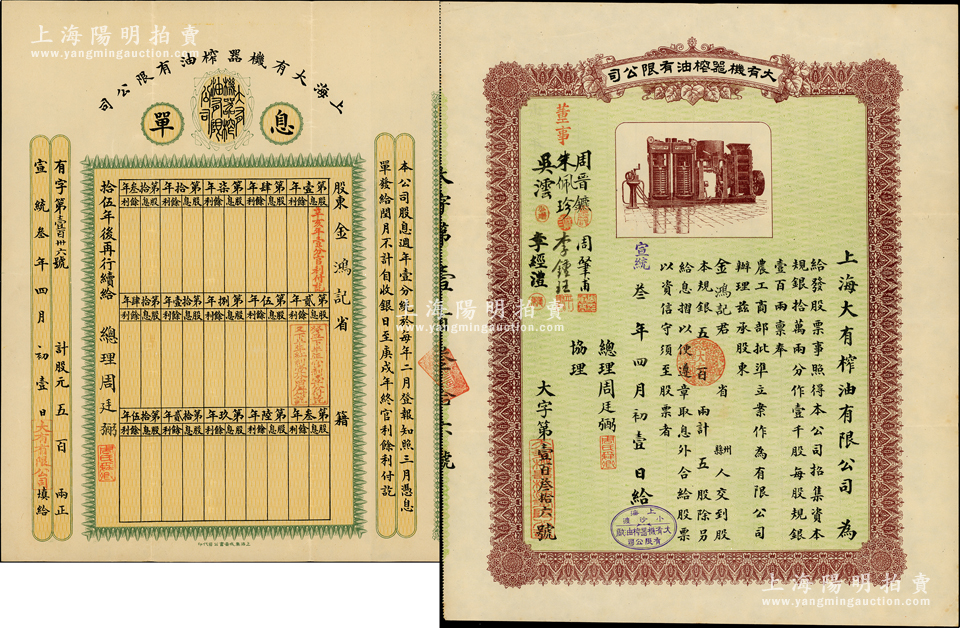 上海陽明拍賣
www.yangmingauction.com
上海大有機器榨油有限公司
大有機器榨油有限公司
息單
本公司股息週年壹分統於每年二月登報知照三月憑息
單發給閏月不計自收銀日至庚戌年終官利餘利付訖
股東金鴻記 省 籍
第壹年 第肆年 第柒年 第拾年 第拾叁年
股息 餘利 股息 餘利 股息 餘利 股息 餘利 股息 餘利
辛亥年壹分官利付訖
第貳年 第伍年 第捌年 第拾壹年 第拾肆年
股息 餘利 股息 餘利 股息 餘利 股息 餘利 股息 餘利
第叁年 第陸年 第玖年 第拾貳年 第拾伍年
股息 餘利 股息 餘利 股息 餘利 股息 餘利 股息 餘利
拾伍年後再行續給 總理周廷弼
有字第壹百卅六號 計股元五百兩正
宣統叁年四月初壹日大有有限公司填給
大有機器榨油有限公司
上海大有榨油有限公司 為
給發股票事照得本公司招集資本
規銀拾萬兩分作壹千股每股規銀
壹百兩稟奉
農工商部批準立案作為有限公司
辦理茲承股東
金鴻記君 省 州縣 人交到股
本規銀五百兩計五股除另
給息摺以便遵章取息外合給股票
以資信守須至股票者
宣統叁年四月初壹日給
總理周廷弼
協理
大字第壹百叁拾六號
董事
周晉鑣 周肇甫
朱佩珍 李鍾珏
吳澐 李經澧
上海
小沙渡
大有機器榨油廠
有限公司
上海陽明拍賣
www.yangmingauction.com